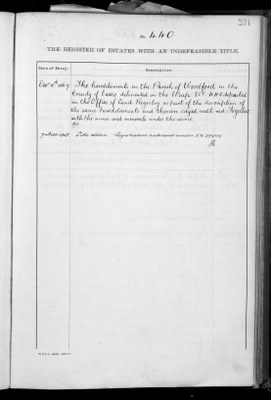 221
No. 440
THE REGISTER OF ESTATES WITH AN INDEFEASIBLE TITLE.
Date of Entry. Description.
The hereditaments in the Parish of Woodford in the
County of Essex delineated in the Map No. deposited
in the Office of Land Registry as part of the description of
the same hereditaments and thereon edged with red Together
with the mines and minerals under the same
Title closed. Registration under